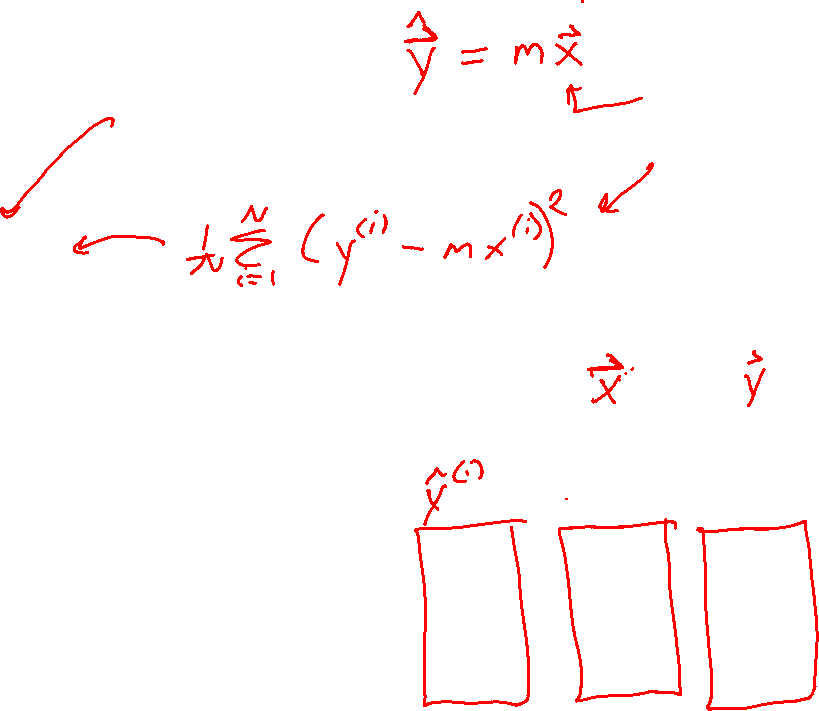 $\hat{\vec{y}} = m\vec{x}$
$\frac{1}{N}\sum_{i=1}^{N}(y^{(i)} - mx^{(i)})^2$
$\vec{x}$ $\vec{y}$
$\hat{y}^{(i)}$